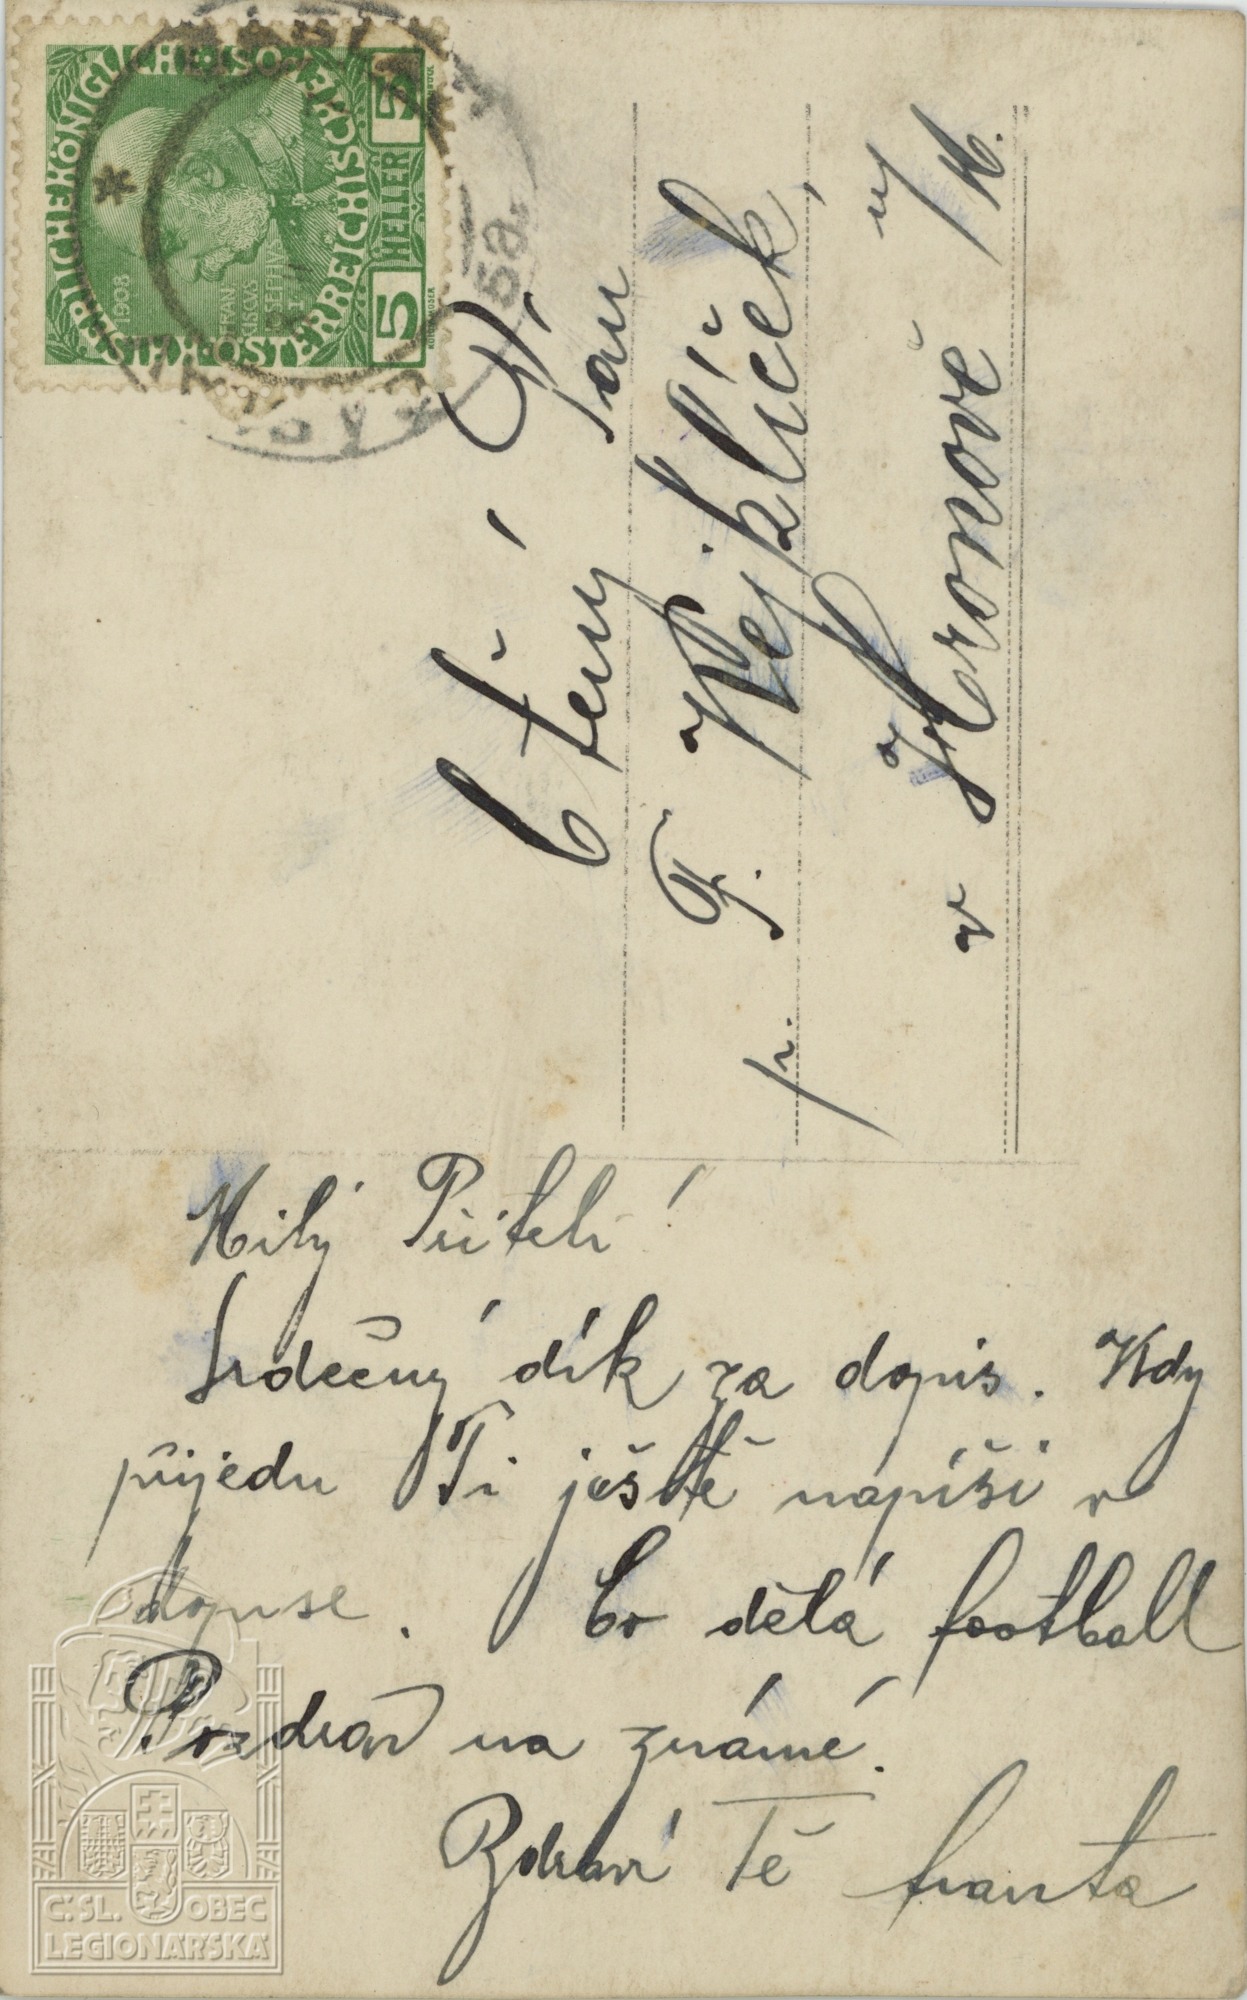 KAISERLICHE KÖNIGLICHE ÖSTERREICHISCHE POST
1908
FRANCISCVS JOSEPHVS I
5 HELLER 5
5a.
Ctěný Pán
F. Kejklíček,
p.
v Hronově n/M.
Milý Příteli!
Srdečný dík za dopis. Kdy
přijedu Ti ještě napíši v
dopise. Co dělá football
Pozdrav na známé.
Zdraví Tě Franta
Č.SL. OBEC
LEGIONÁŘSKÁ